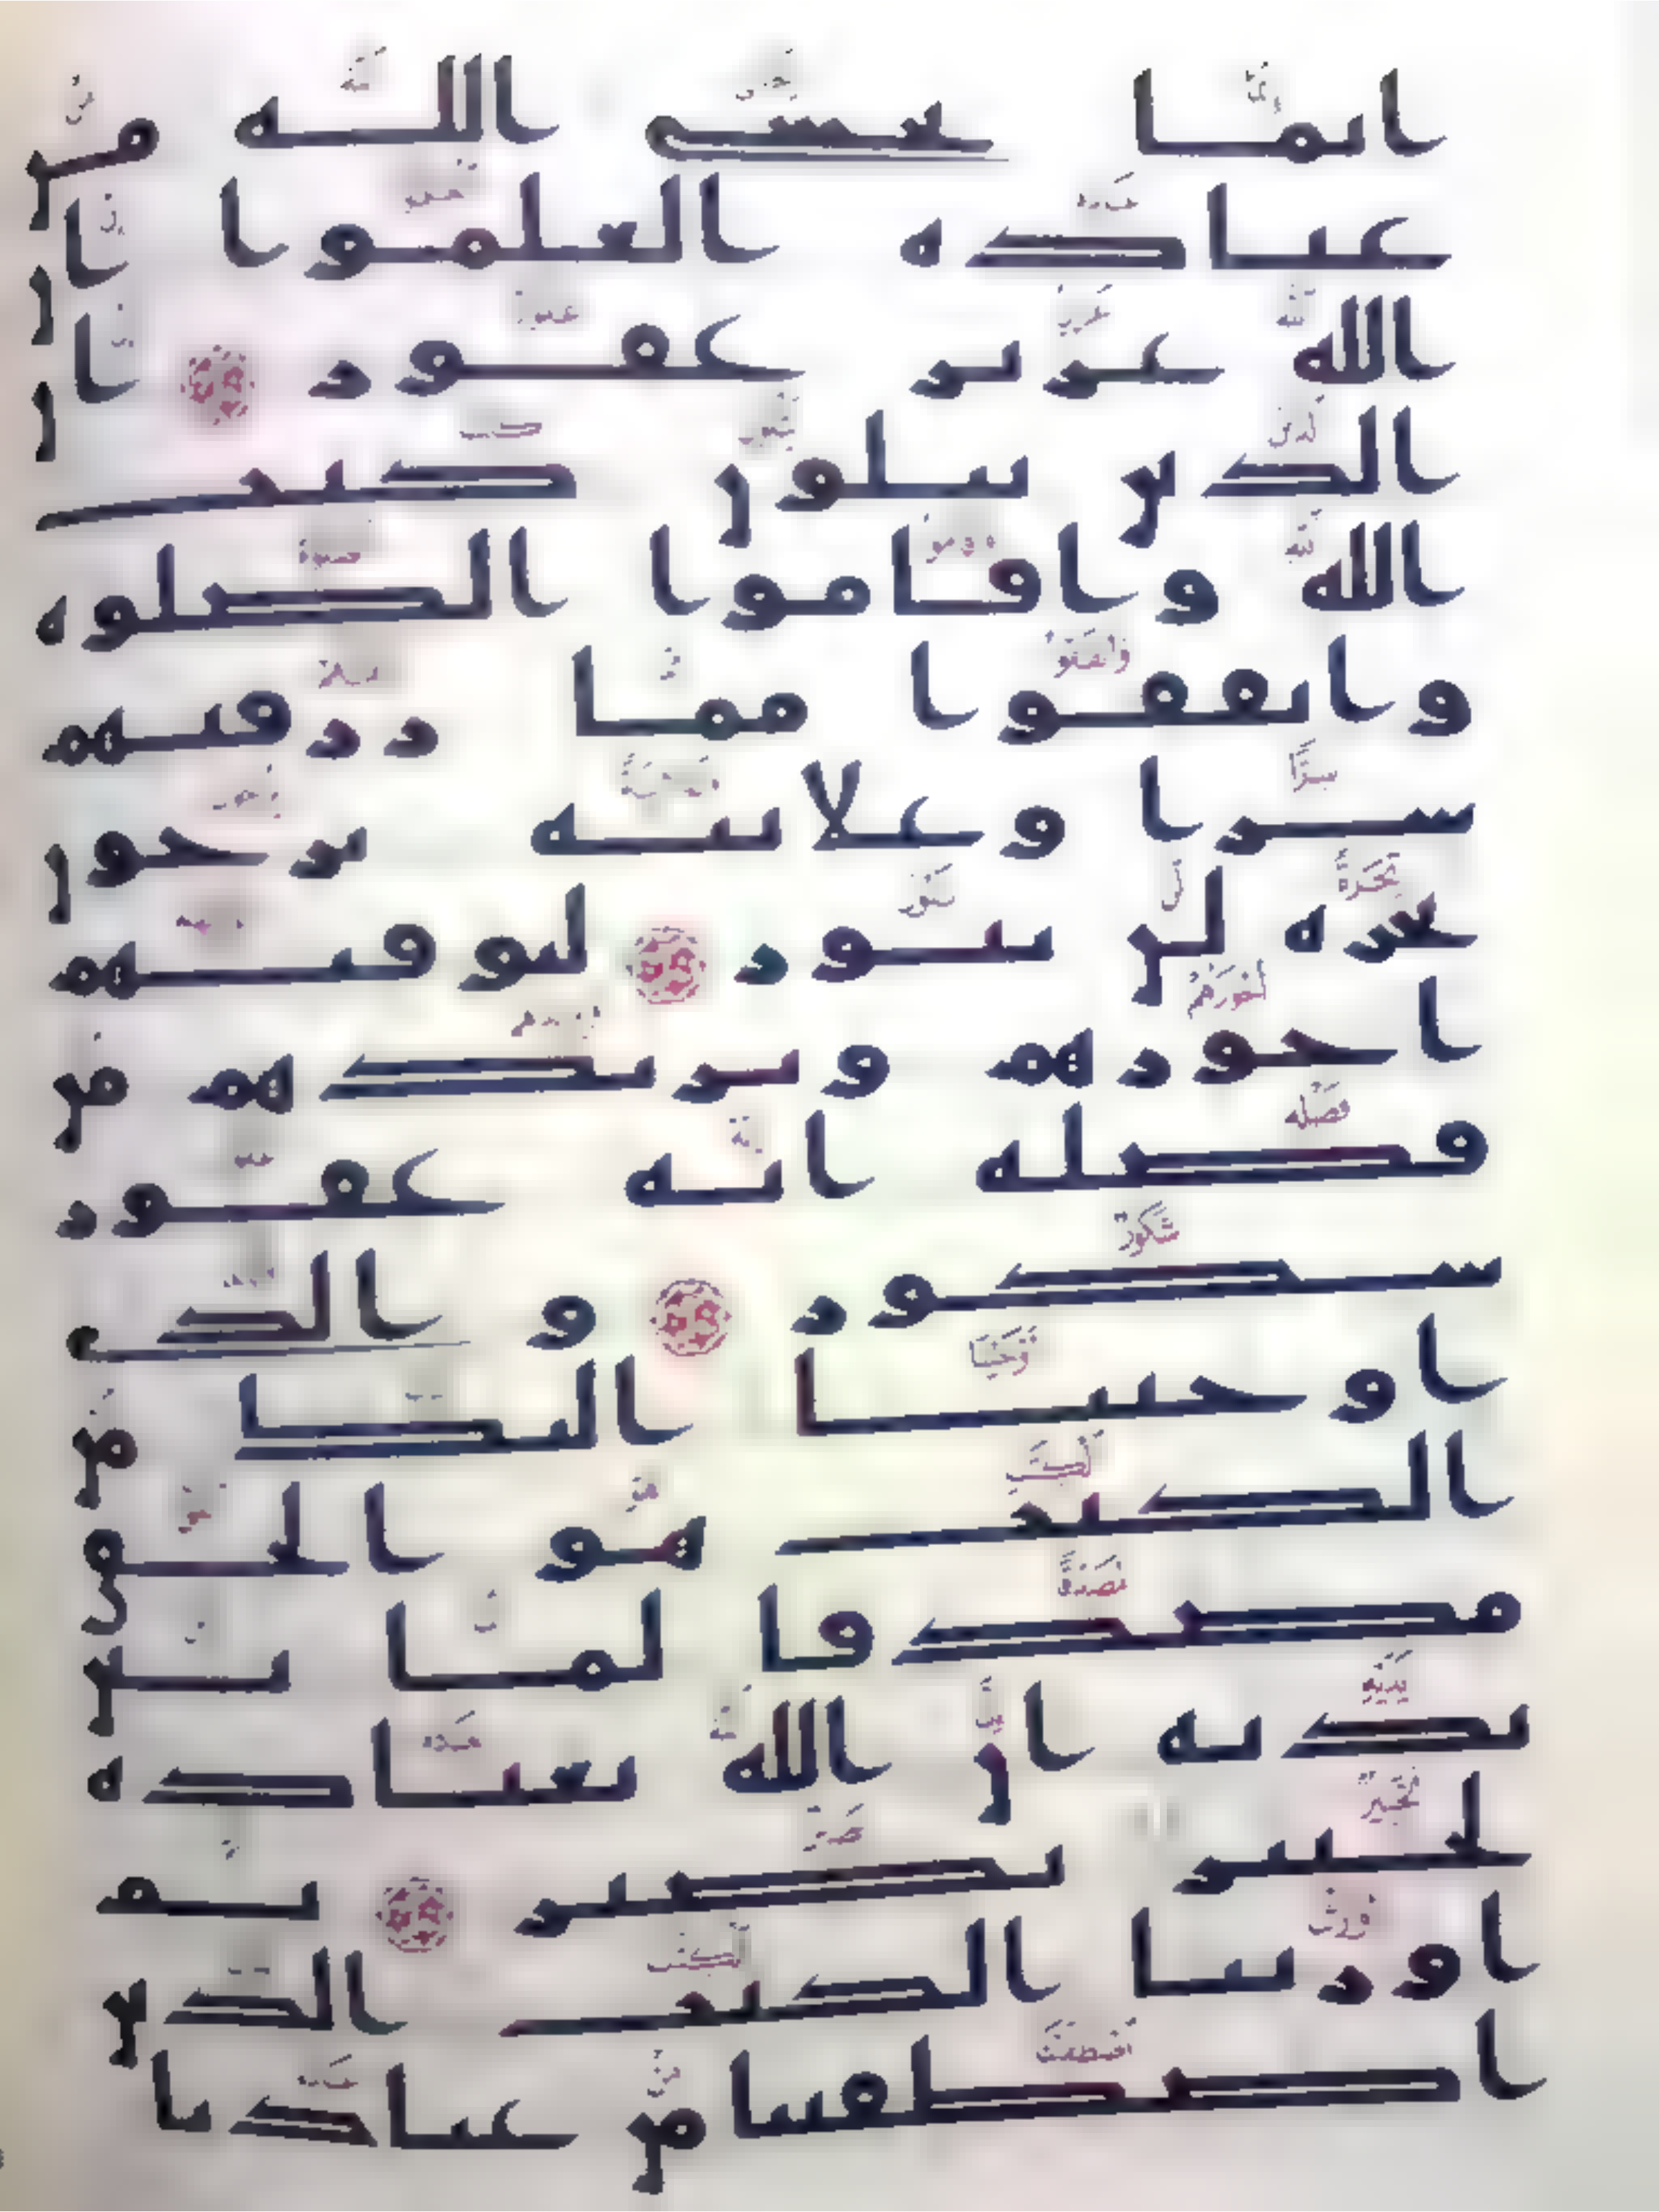 انما يخشى الله من
عباده العلموا ان
الله عزيز غفور ان
الذين يتلون كتب
الله واقاموا الصلوه
وانفقوا مما رزقنهم
سرا وعلانيه يرجون
تجره لن تبور ليوفيهم
اجورهم ويزيدهم من
فضله انه غفور
شكور والذي
اوحينا اليك من
الكتب هو الحق
مصدقا لما بين
يديه ان الله بعباده
لخبير بصير ثم
اورثنا الكتب الذين
اصطفينا من عبادنا